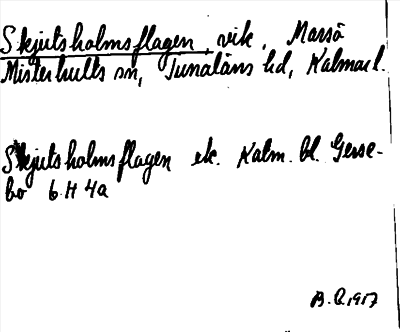 Skjutsholmsflagen, vik, Marsö
Misterhults sn, Tunaläns hd, Kalmar l.
Skjutsholmsflagen ek. Kalm. bl. Gersse-
bo 6 H 4a
1917